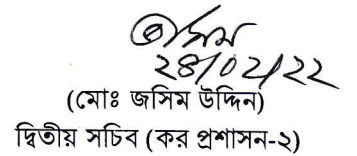 ২৪/০২/২২
(মোঃ জসিম উদ্দিন)
দ্বিতীয় সচিব (কর প্রশাসন-২)